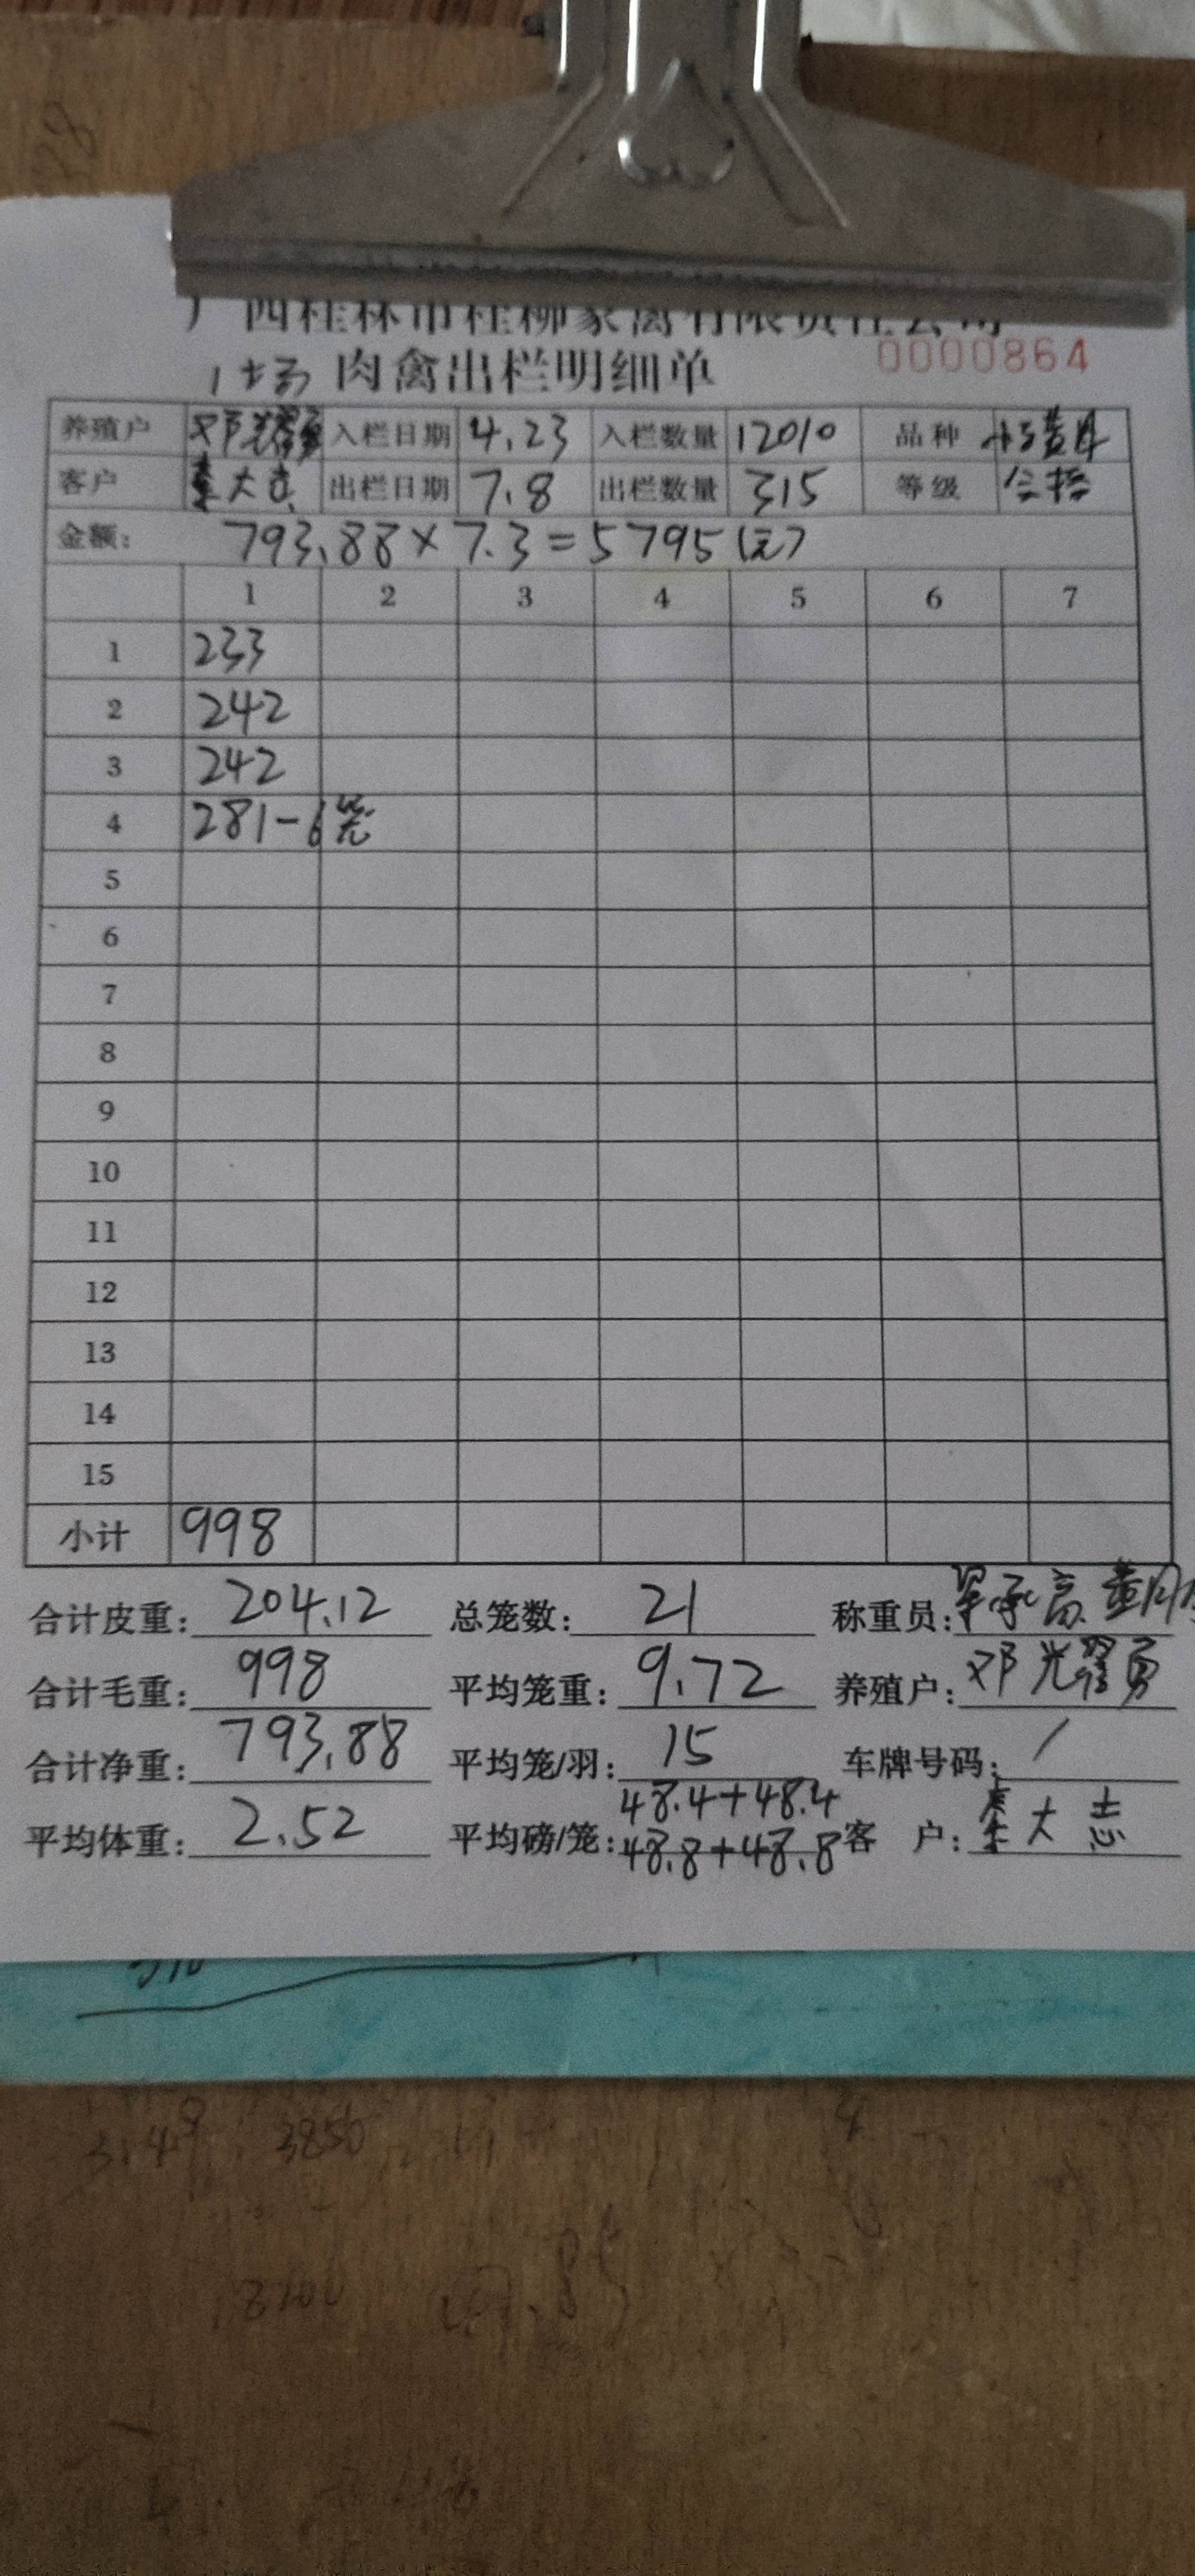 广西桂林市桂柳家禽有限责任公司
肉禽出栏明细单 0000864
养殖户 邓光耀勇 入栏日期 4.23 入栏数量 12010 品种
客户 大志 出栏日期 7.8 出栏数量 315 等级 合格
金额: 793.88×7.3=5795(元)
1 2 3 4 5 6 7
1 233
2 242
3 242
4 281-6笼
5
6
7
8
9
10
11
12
13
14
15
小计 998
合计皮重: 204.12 总笼数: 21 称重员:
合计毛重: 998 平均笼重: 9.72 养殖户: 邓光耀勇
合计净重: 793.88 平均笼/羽: 15 车牌号码: /
48.4+48.4
平均体重: 2.52 平均磅/笼: 48.8+48.8 客 户: 大志
3850